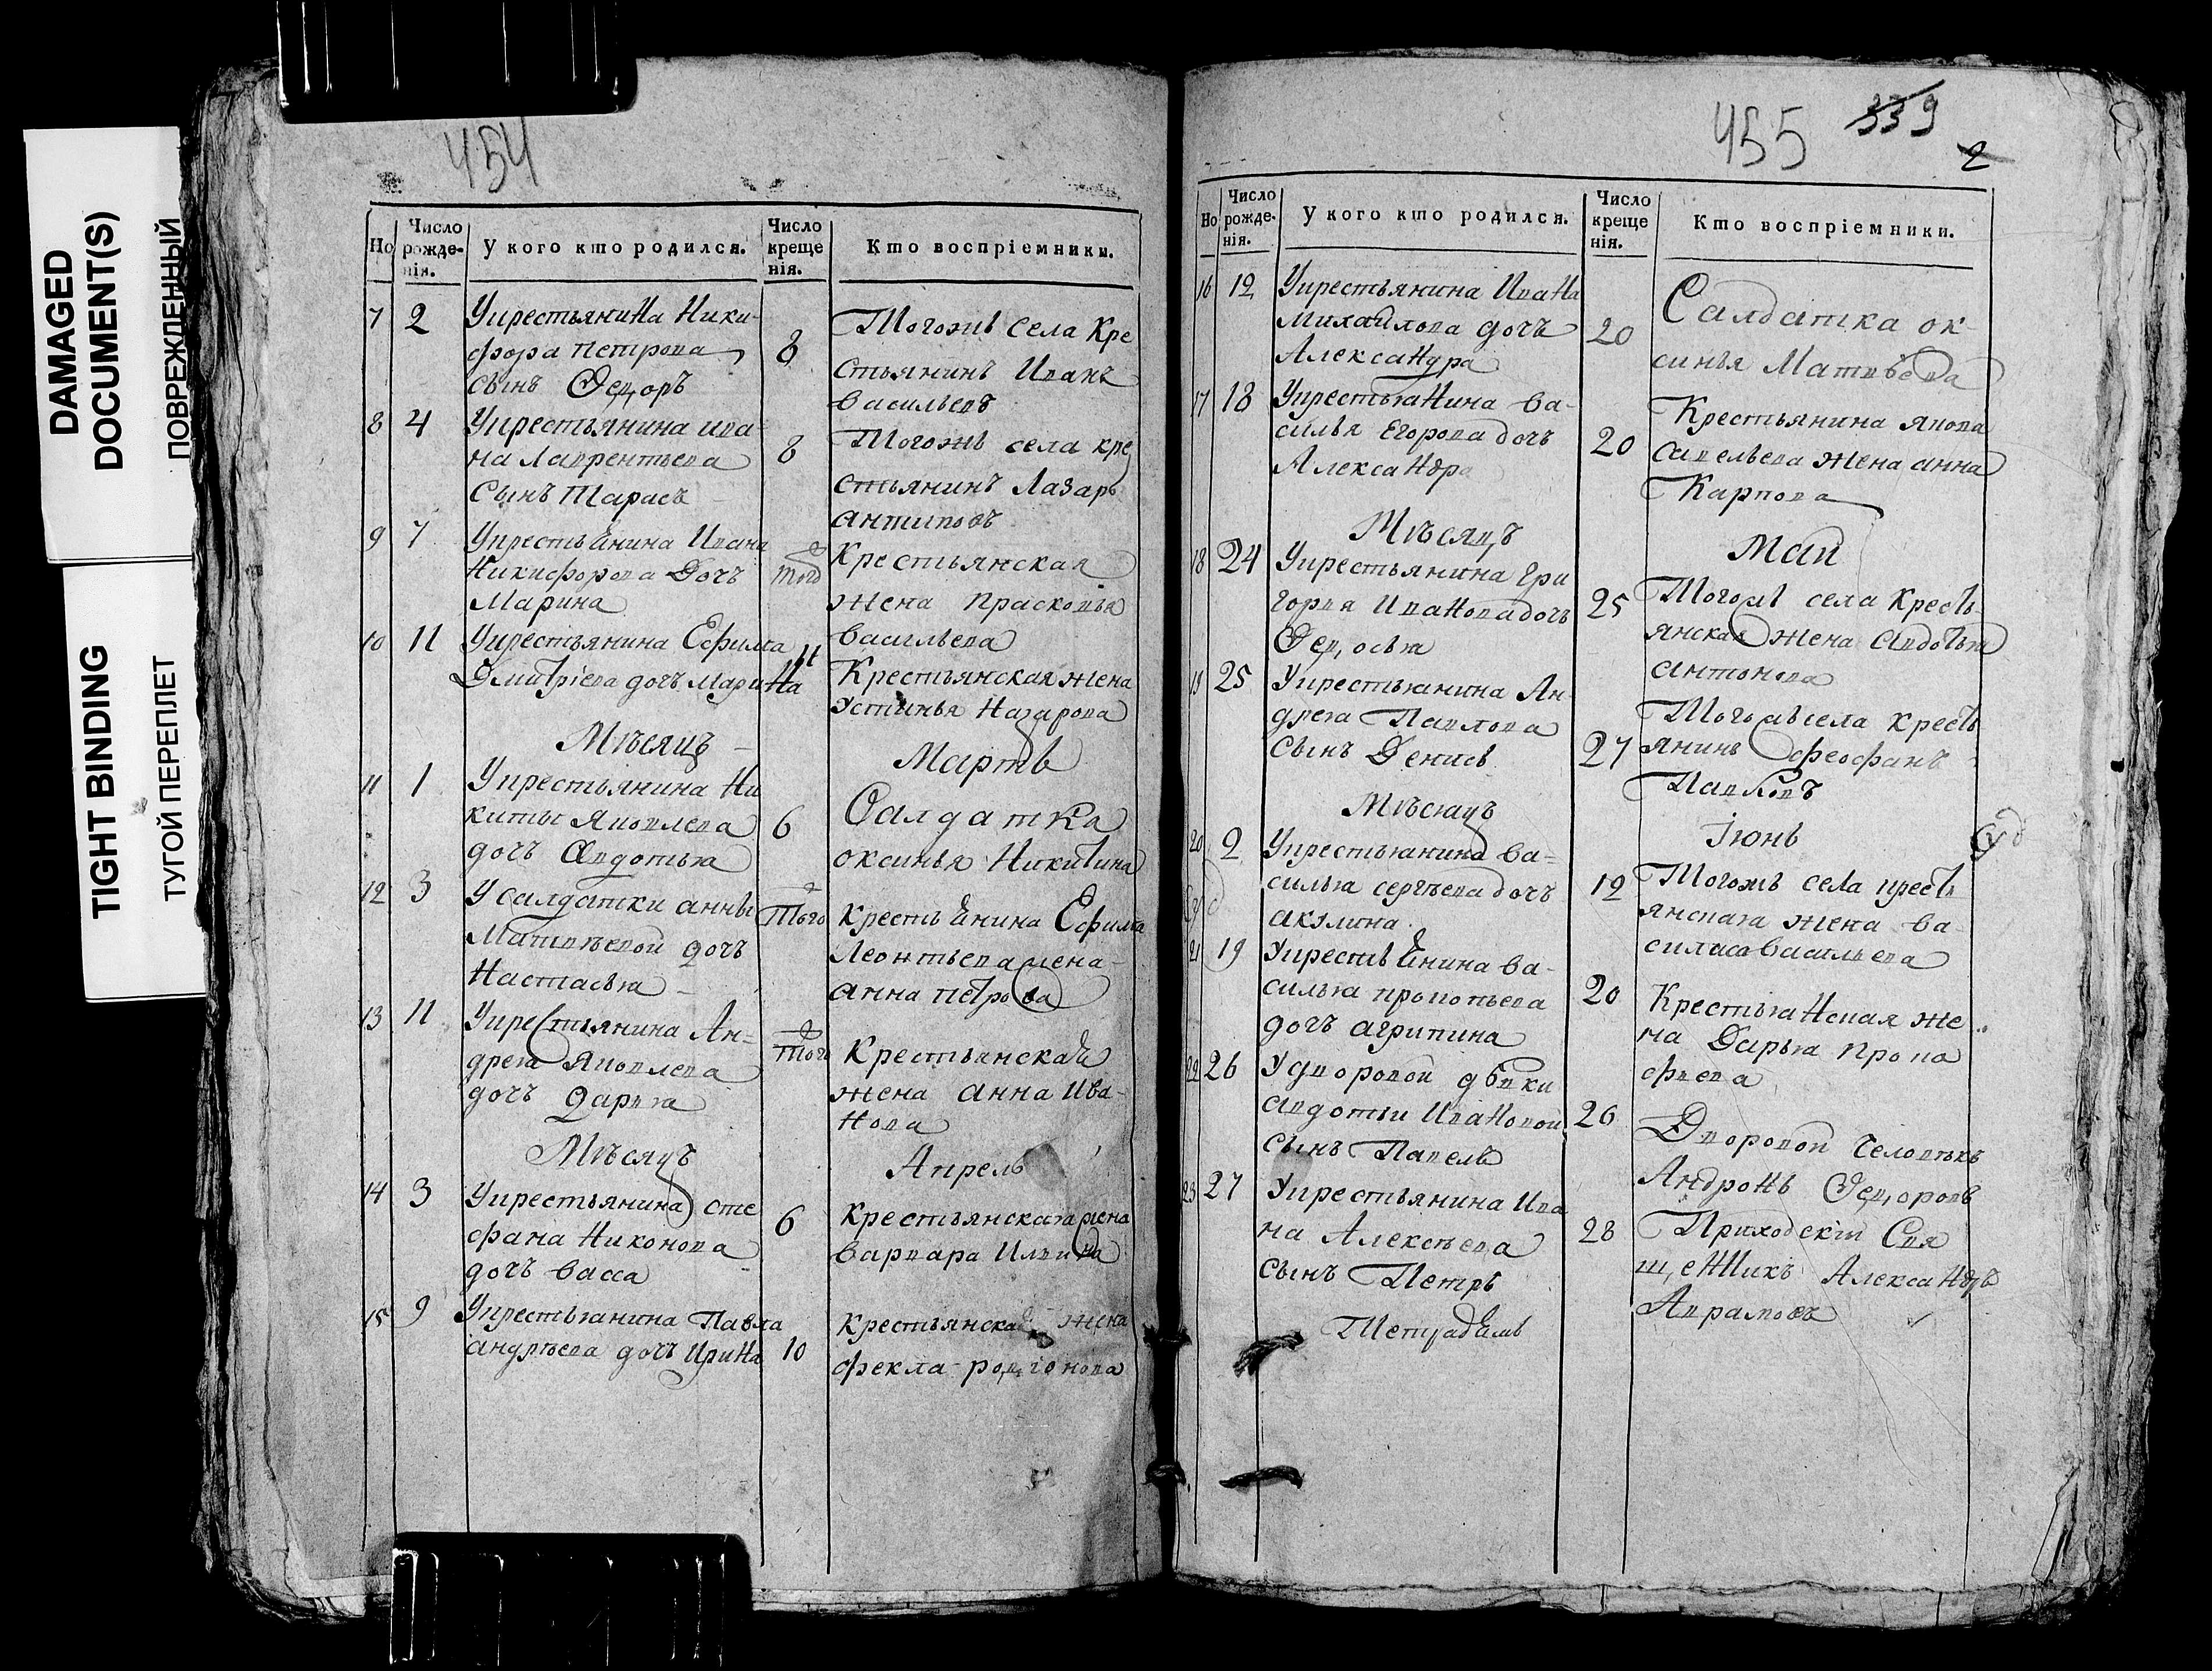 DAMAGED
DOCUMENT(S)
ПОВРЕЖДЕННЫЙ
TIGHT BINDING
ТУГОЙ ПЕРЕПЛЕТ
454
Но
Число рожде-нія.
У кого кто родился.
Число креще нія.
Кто воспріемники.
7 2 Укрестьянина Ники-
фора Петрова
сынъ Федоръ
8
Тогожъ села кре
стьянинъ Иванъ
Васильевъ
8 4 Укрестьянина ива
на Лаврентьева
сынъ Тарасъ
8
Тогожъ села кре
стьянинъ Лазарь
антиповъ
9 7 Укрестьянина Ивана
Никифорова дочь
Марина
того
Крестьянская
жена Прасковья
Васильева
10 11 Укрестьянина Ефима
Дмитріева дочь Марина
11
Крестьянская жена
Устинья Назарова
Мѣсяцъ
Мартъ
11 1 Укрестьянина Ни
киты Яковлева
дочь Авдотья
6
Салдатка
оксинья Никитина
12 3 У салдатки анны
Матвѣевой дочь
Настасья
того
Крестьянина Ефима
Леонтьева жена
анна петрова
13 11 Укрестьянина Ан-
дрея Яковлева
дочь Дарья
того
Крестьянская
жена анна Ива-
нова
Мѣсяцъ
Апрель
14 3 Укрестьянина сте
фана Никонова
дочь васса
6
Крестьянская жена
варвара Ильина
15 9 Укрестьянина Павла
андрѣева дочь Ирина
10
Крестьянская жена
фекла родіонова
455 339
2
Но
Число рожде-нія.
У кого кто родился.
Число креще нія.
Кто воспріемники.
16 12 Укрестьянина Ивана
михайлова дочь
Александра
20
Салдатка ок-
синья Матвѣева
17 18 Укрестьянина ва-
силья Егорова дочь
Александра
20
Крестьянина якова
савельева жена анна
Карпова
Мѣсяцъ
Май
18 24 Укрестьянина Гри
горья Иванова дочь
Федосья
25
Тогожъ села кресть-
янская жена Авдотья
антонова
19 25 Укрестьянина Ан-
дрея Павлова
сынъ Денисъ
27
Тогожъ села кресть
янинъ феофанъ
Мѣсяцъ
Іюнь
20 2 Укрестьянина ва=
силья сергѣева дочь
акулина
12
Тогожъ села кресть
янская жена ва-
силиса васильева
21 19 Укрестьянина ва-
силья прокопьева
дочь агрипина
20
Крестьянская же
на Дарья Проко
фьева
22 26 У дворовой дѣвки
авдотьи Ивановой
сынъ Павелъ
26
Дворовой человѣкъ
Андронъ Федоровъ
23 27 Укрестьянина Ива
на Алексѣева
сынъ Петръ
28
Приходскій Свя
щенникъ Александръ
Аврамовъ